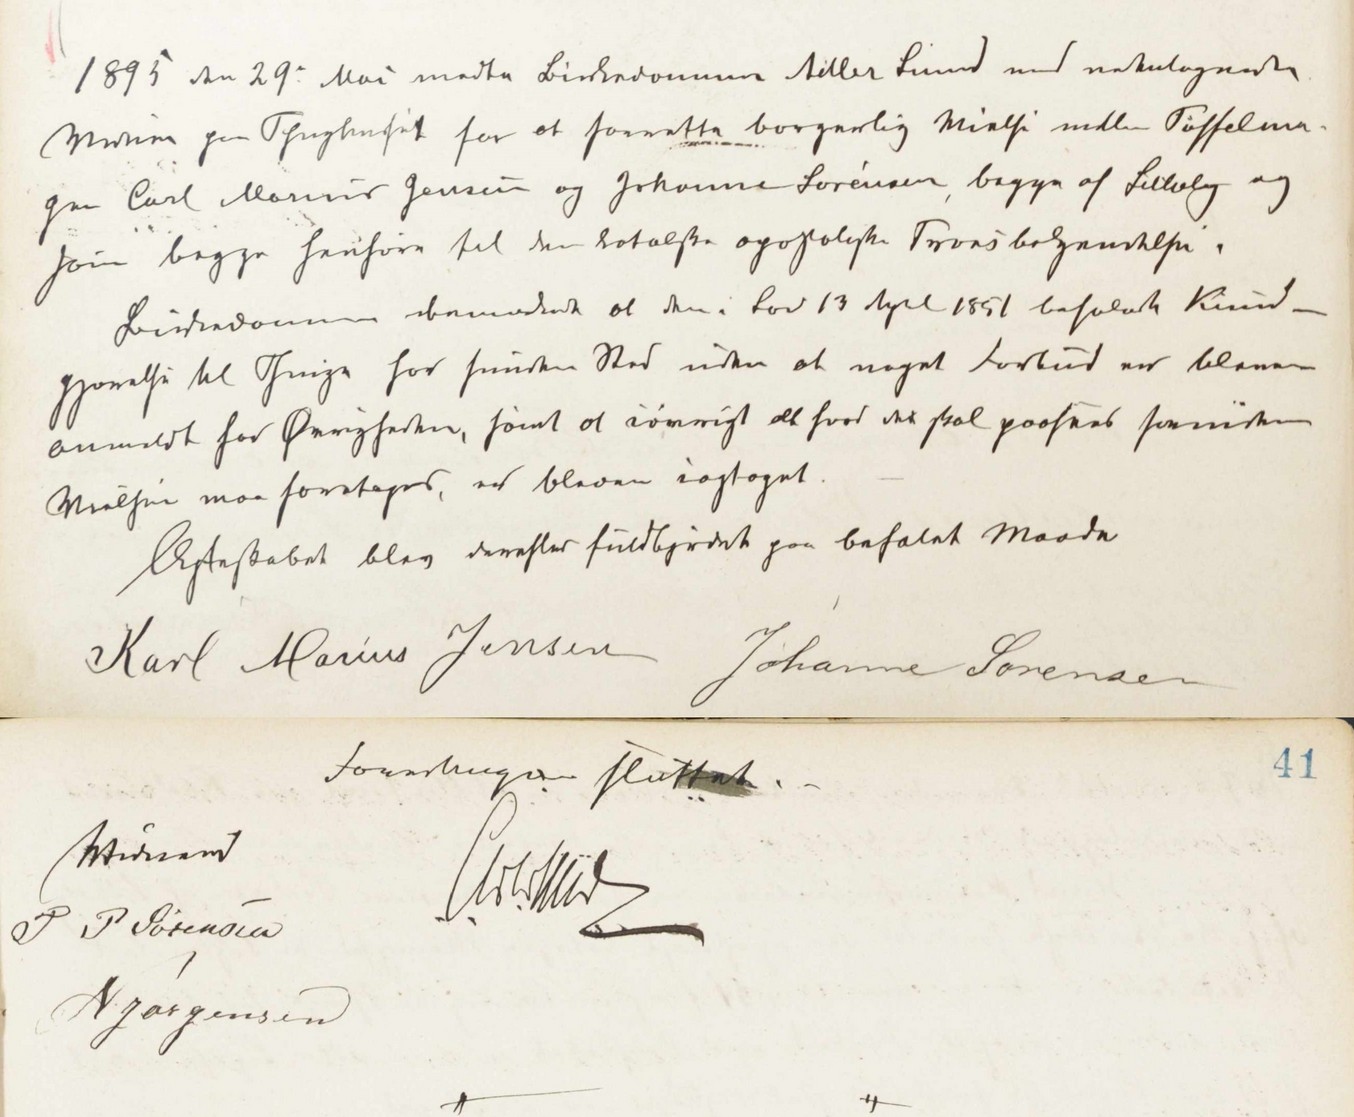 1895 den 29de Mai mødte Birkedommer Adler Lund med undertegnede
Vidner paa Thinghuset for at foretage borgerlig Vielse mellem Tøffelma-
ger Carl Marius Jensen og Johanne Sørensen, begge af og
som begge henhøre til den apostoliske Troesbekjendelse.
Birkedommeren bemærkede at den i Lov 13 April 1851 befalede Kund-
gjørelse til Thinge har funden Sted uden at noget Forbud er bleven
anmeldt for Øvrigheden, samt at iøvrigt alt hvad der skal paasees forinden
Vielsen maa foretages, er bleven iagttaget.
Ægteskabet blev derefter fuldbyrdet paa befalet Maade
Karl Marius Jensen Johanne Sørensen
41
Forretningen sluttet.
Vidner
P P Sørensen
N Jørgensen